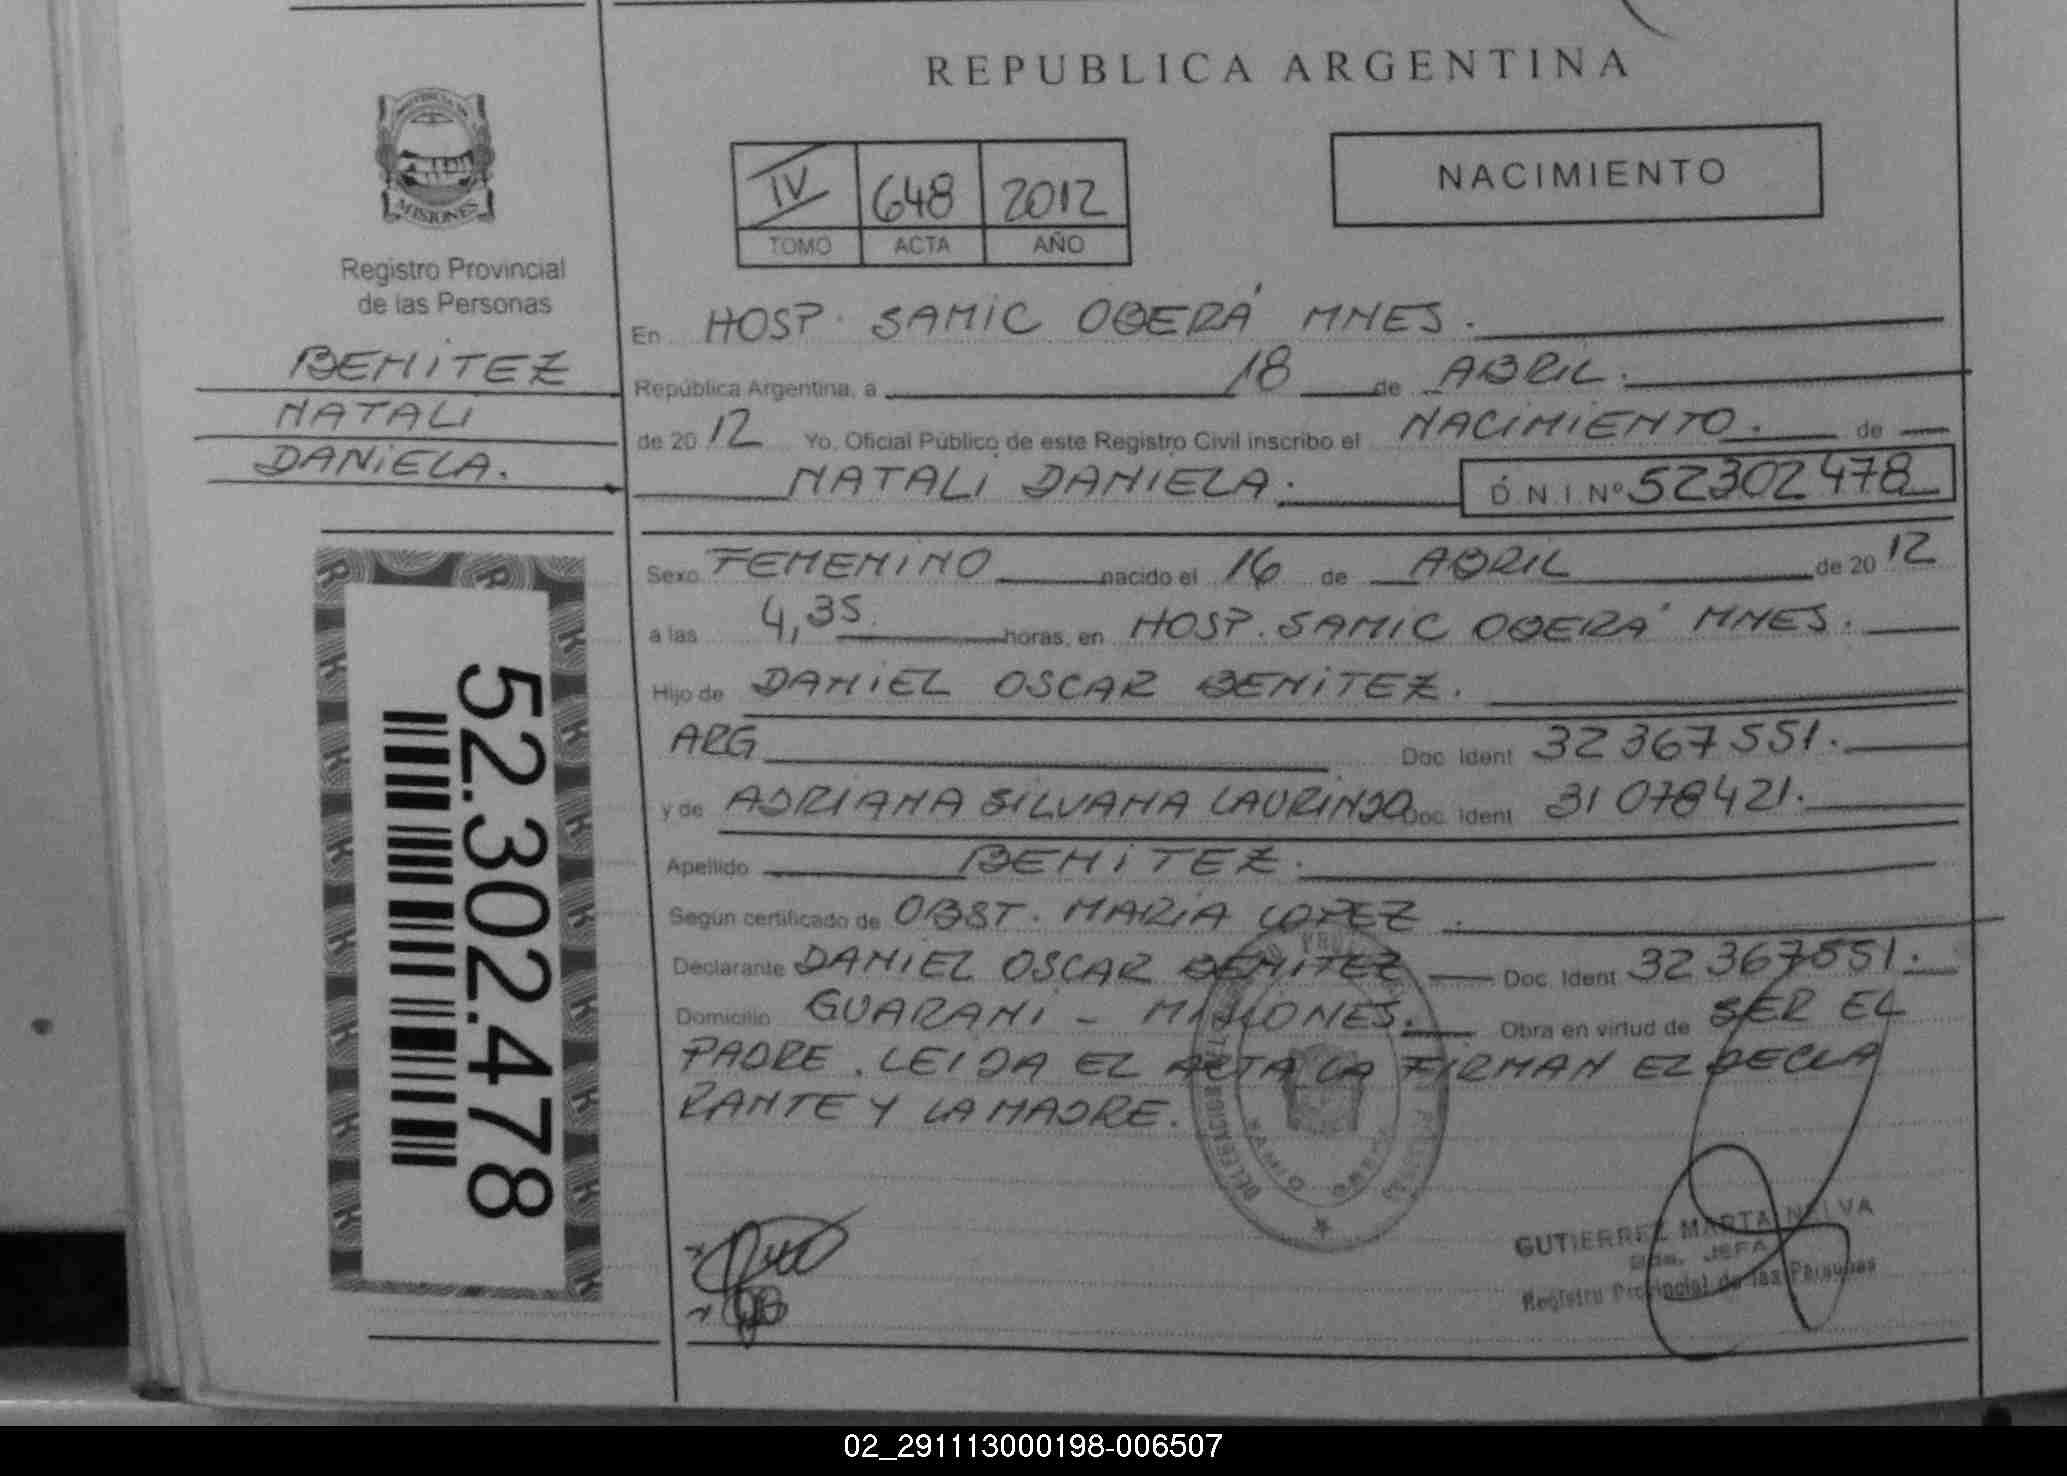 REPUBLICA ARGENTINA
MISIONES
Registro Provincial
de las Personas
BENITEZ
NATALI
DANIELA.
52.302.478
IV 648 2012
TOMO ACTA AÑO
NACIMIENTO
En HOSP. SAMIC OBERÁ MNES.
República Argentina, a 18 de ABRIL.
de 2012 Yo, Oficial Público de este Registro Civil inscribo el NACIMIENTO. de
NATALI DANIELA. D.N.I Nº 52302478
Sexo FEMENINO nacido el 16 de ABRIL de 2012
a las 4,35 horas, en HOSP. SAMIC OBERÁ MNES.
Hijo de DANIEL OSCAR BENITEZ.
ARG Doc. Ident 32367551.
y de ADRIANA SILVANA LAURINDO Doc. Ident 31078421.
Apellido BENITEZ.
Según certificado de OBST. MARIA LOPEZ.
Declarante DANIEL OSCAR BENITEZ Doc. Ident 32367551.
Domicilio GUARANI - MISIONES. Obra en virtud de SER EL
PADRE. LEIDA EL ACTA LA FIRMAN EL DECLA
RANTE Y LA MADRE.
GUTIERREZ MARTA NELVA
JEFA
Registro Provincial de las Personas
02_291113000198-006507